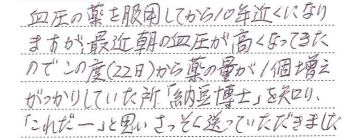 血圧の薬を服用してから10年近くになり
ますが最近朝の血圧が高くなってきた
のでこの度(22日)から薬の量が1個増え
がっかりしていた所「納豆博士」を知り、
「これだー」と思いさっそく送っていただきました